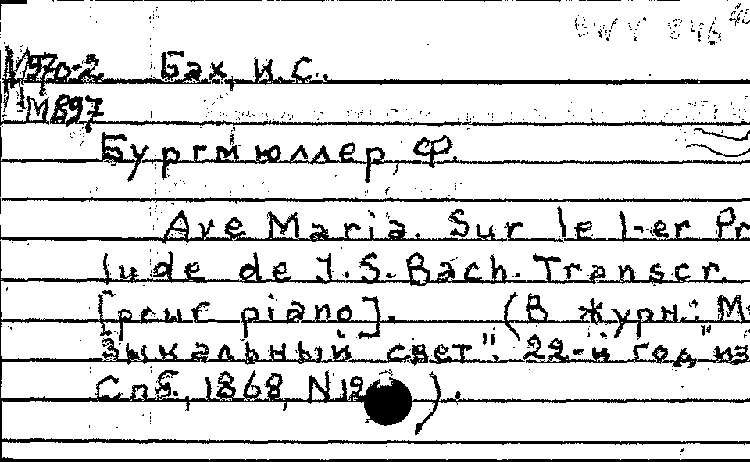 BWV 846
М970-2 Бах, И.С..
М897
Бургмюллер, Ф.
Ave Maria. Sur le 1-er Pr
lude de J.S.Bach. Transcr.
[pour piano]. (В журн.: М
зыкальный свет". 22-й год, "из
Спб., 1868, N12 ).